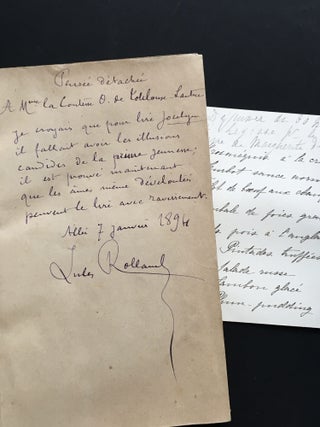 Pensée détachée
A Mme la Comtesse O. de Toulouse Lautrec
Je croyais que pour lire Jocelyn
il fallait avoir les illusions
candides de la prime jeunesse;
il est prouvé maintenant
que les âmes même déveloutées
peuvent le lire avec ravissement.
Albi 7 janvier 1894
Jules Rolland
Déjeuner de
à la cr
sauce
de bœuf aux cham
de foies gras
pois à l'angla
Pintades truffées
Salade russe
Jambon glacé
Plum-pudding